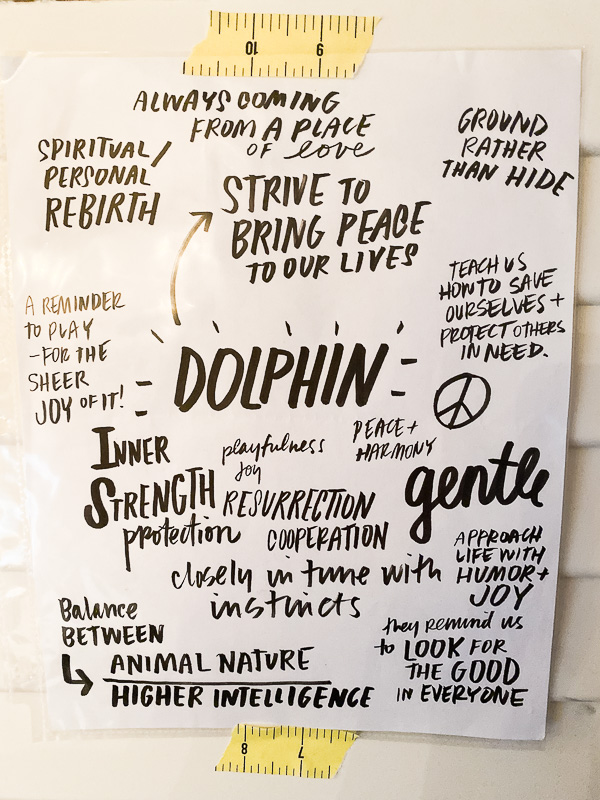 10 9
ALWAYS COMING
FROM A PLACE
OF love
SPIRITUAL/
PERSONAL
REBIRTH
GROUND
RATHER
THAN HIDE
STRIVE TO
BRING PEACE
TO OUR LIVES
TEACH US
HOW TO SAVE
OURSELVES +
PROTECT OTHERS
IN NEED.
A REMINDER
TO PLAY
-FOR THE
SHEER
JOY OF IT!
DOLPHIN
INNER
STRENGTH
playfulness
joy
PEACE +
HARMONY
gentle
RESURRECTION
protection
COOPERATION
closely in tune with
instincts
APPROACH
LIFE WITH
HUMOR +
JOY
Balance
BETWEEN
ANIMAL NATURE
HIGHER INTELLIGENCE
they remind us
to LOOK FOR
THE GOOD
IN EVERYONE
8 7